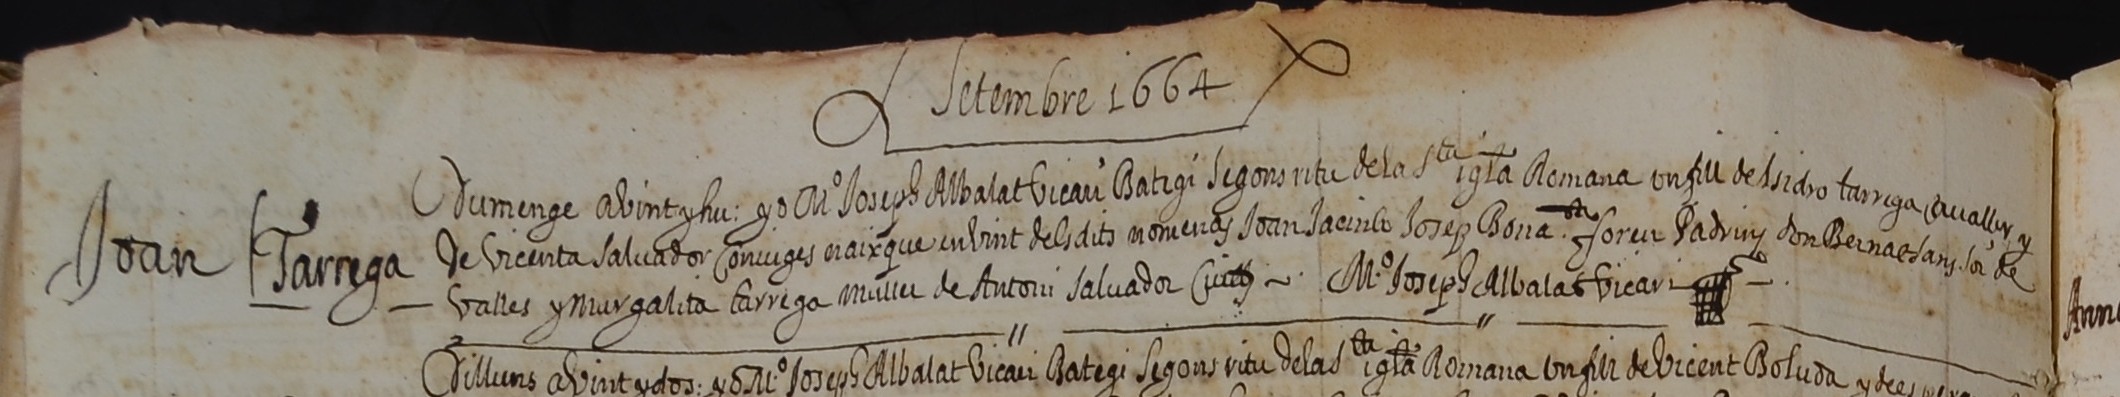 Setembre 1664
Joan Tarrega
Dumenge a vint y hu: yo Mº Joseph Albalat Vicari Bategi segons ritu de la Sta igla Romana un fill de Isidro tarrega Cavaller, y
de Vicenta Salvador Conuiges naixque en vint dels dits nomenas Joan Jacinto Josep Bona. foren Padrins don Bernat sans. sor de
Valles y Margalita tarrega muller de Antoni Salvador Ciuta ~. Mº Joseph Albalat Vicari
Dilluns a vint y dos: yo Mº Joseph Albalat Vicari Bategi segons ritu de la Sta igla Romana un fill de Vicent Boluda y de